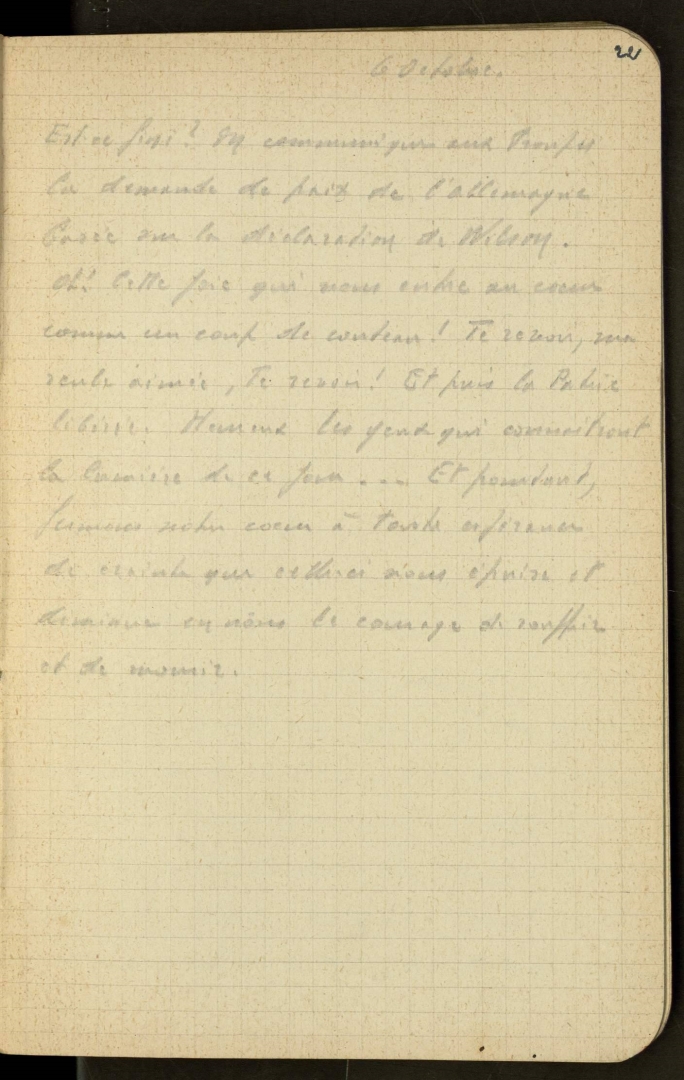 22
6 Octobre.
Est-ce fini? On communique aux Troupes
la demande de paix de l'Allemagne
basée sur la déclaration de Wilson.
Oh! Cette joie qui nous entre au coeur
comme un coup de couteau! Te revoir, ma
seule aimée, Te revoir! Et puis la Patrie
libérée. Heureux les yeux qui connaitront
la lumière de ce jour ... Et pourtant,
fermons notre coeur à toute espérance
de crainte que celle-ci nous épuise et
diminue en nous le courage de souffrir
et de mourir.